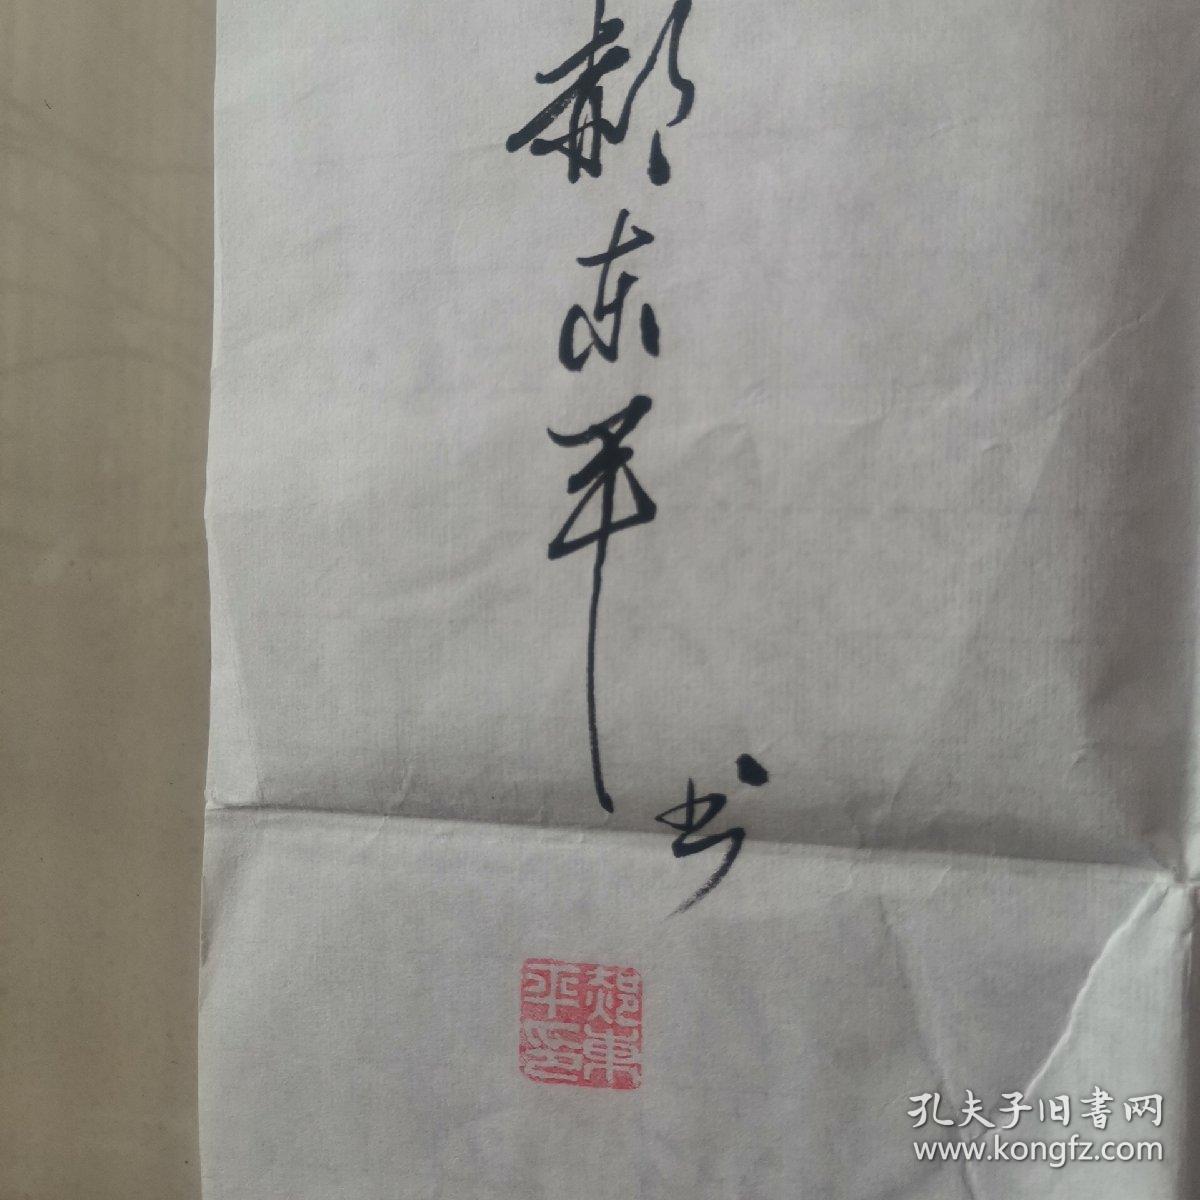 郝东平书
郝東平印
孔夫子旧書网
www.kongfz.com